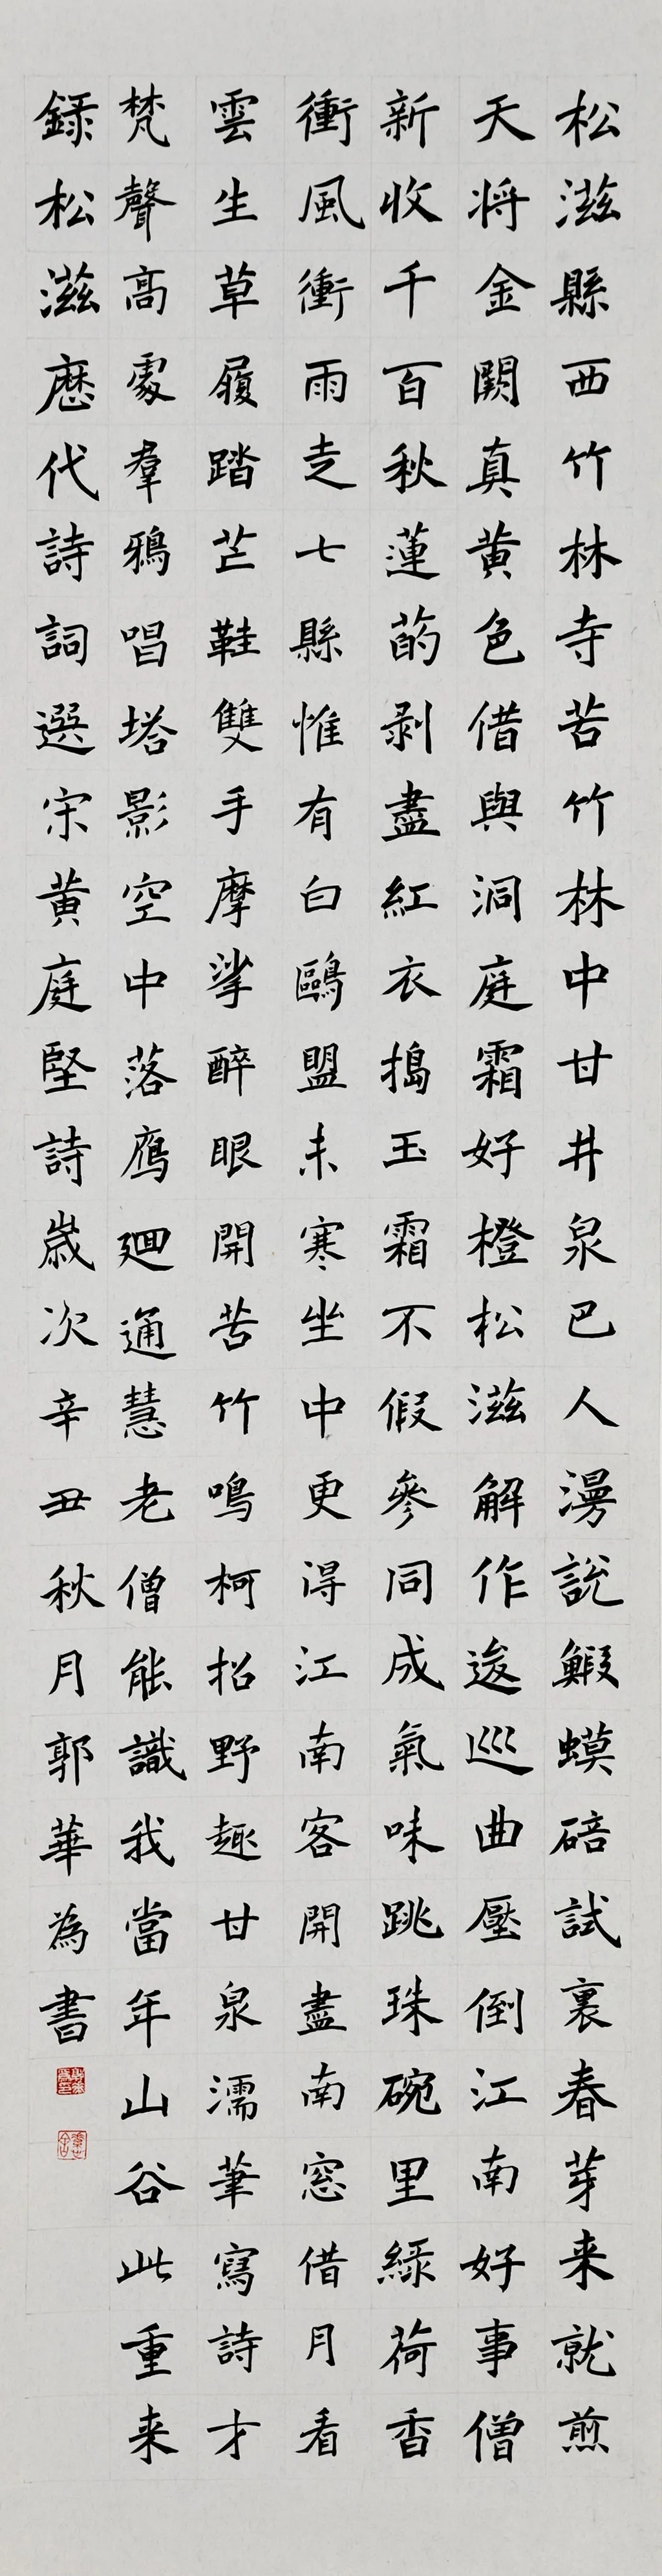 松滋縣西竹林寺苦竹林中甘井泉巴人漫說鰕蟆碚試裹春芽来就煎
天将金闕真黄色借與洞庭霜好橙松滋解作逡巡曲壓倒江南好事僧
新收千百秋蓮菂剥盡紅衣搗玉霜不假參同成氣味跳珠碗里綠荷香
衝風衝雨走七縣惟有白鷗盟未寒坐中更得江南客開盡南窓借月看
雲生草履踏芒鞋雙手摩挲醉眼開苦竹鳴柯招野趣甘泉濡筆寫詩才
梵聲高處羣鴉唱塔影空中落鴈廻通慧老僧能識我當年山谷此重来
録松滋歷代詩詞選宋黄庭堅詩歲次辛丑秋月郭華為書